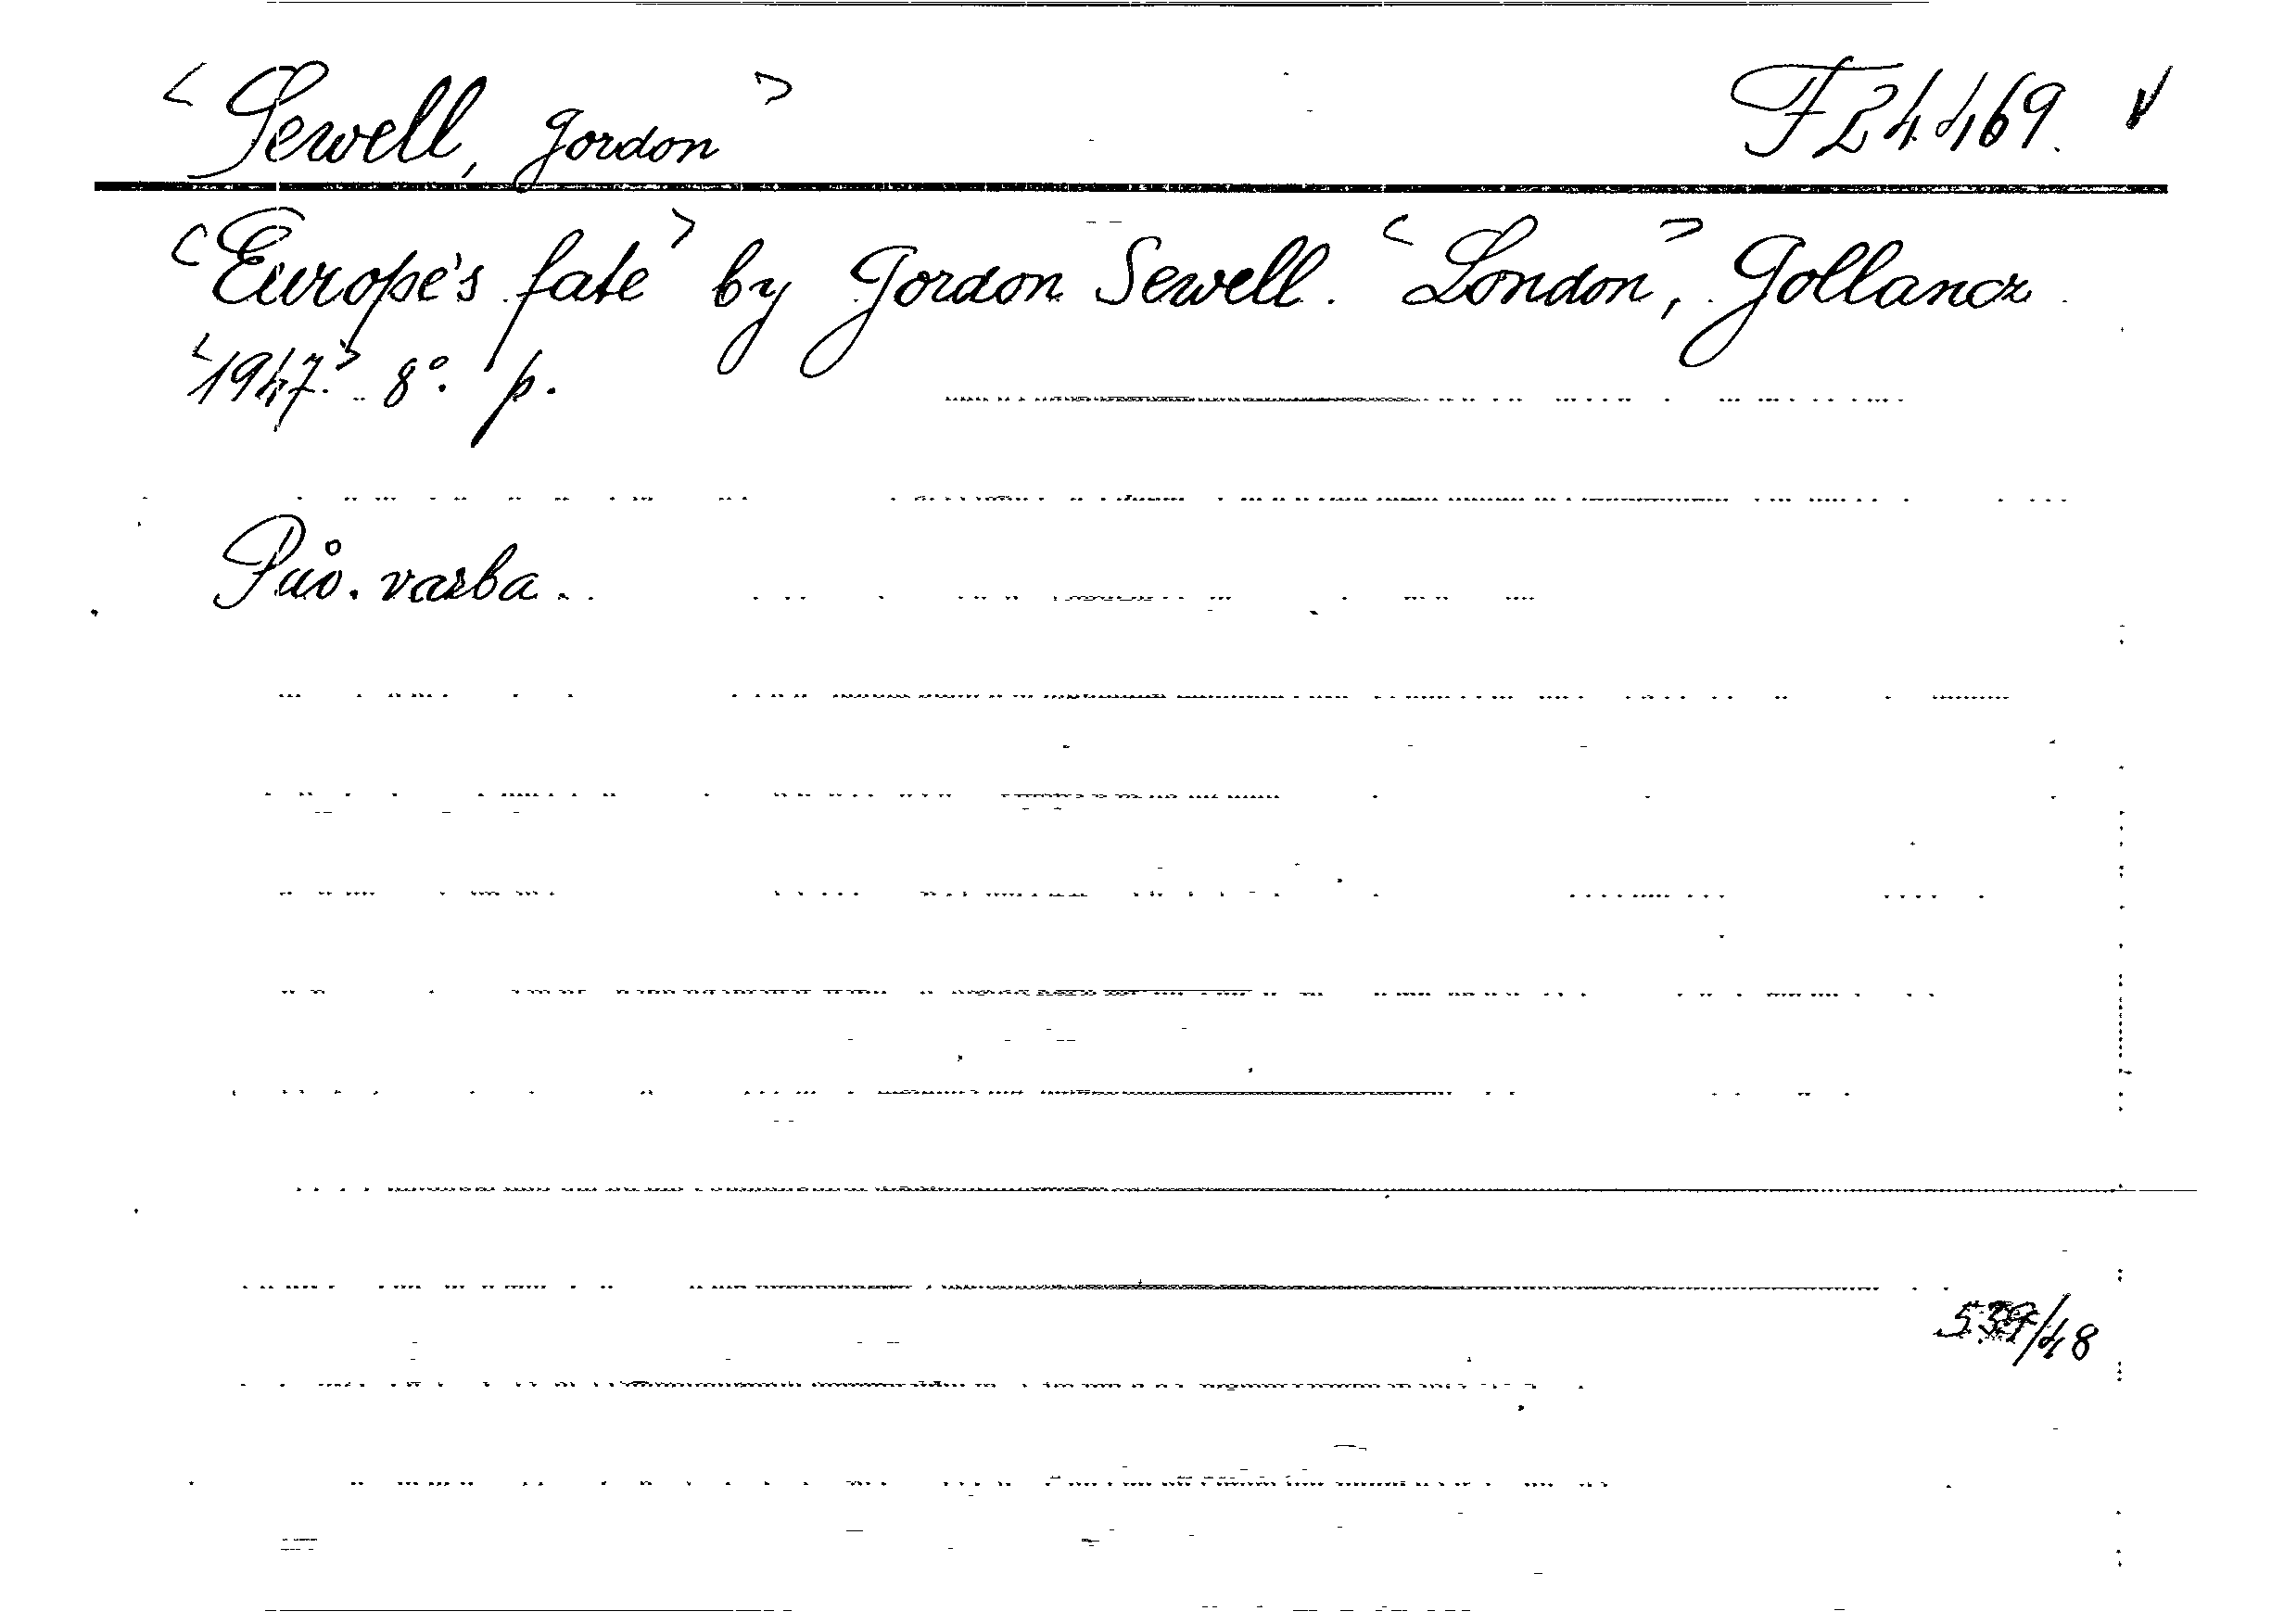 <Sewell, Gordon> F 24469. v
<Europe's fate> by Gordon Sewell. <London>, Gollancz
<1947.> 8°. p.
Pův. vazba.
/48